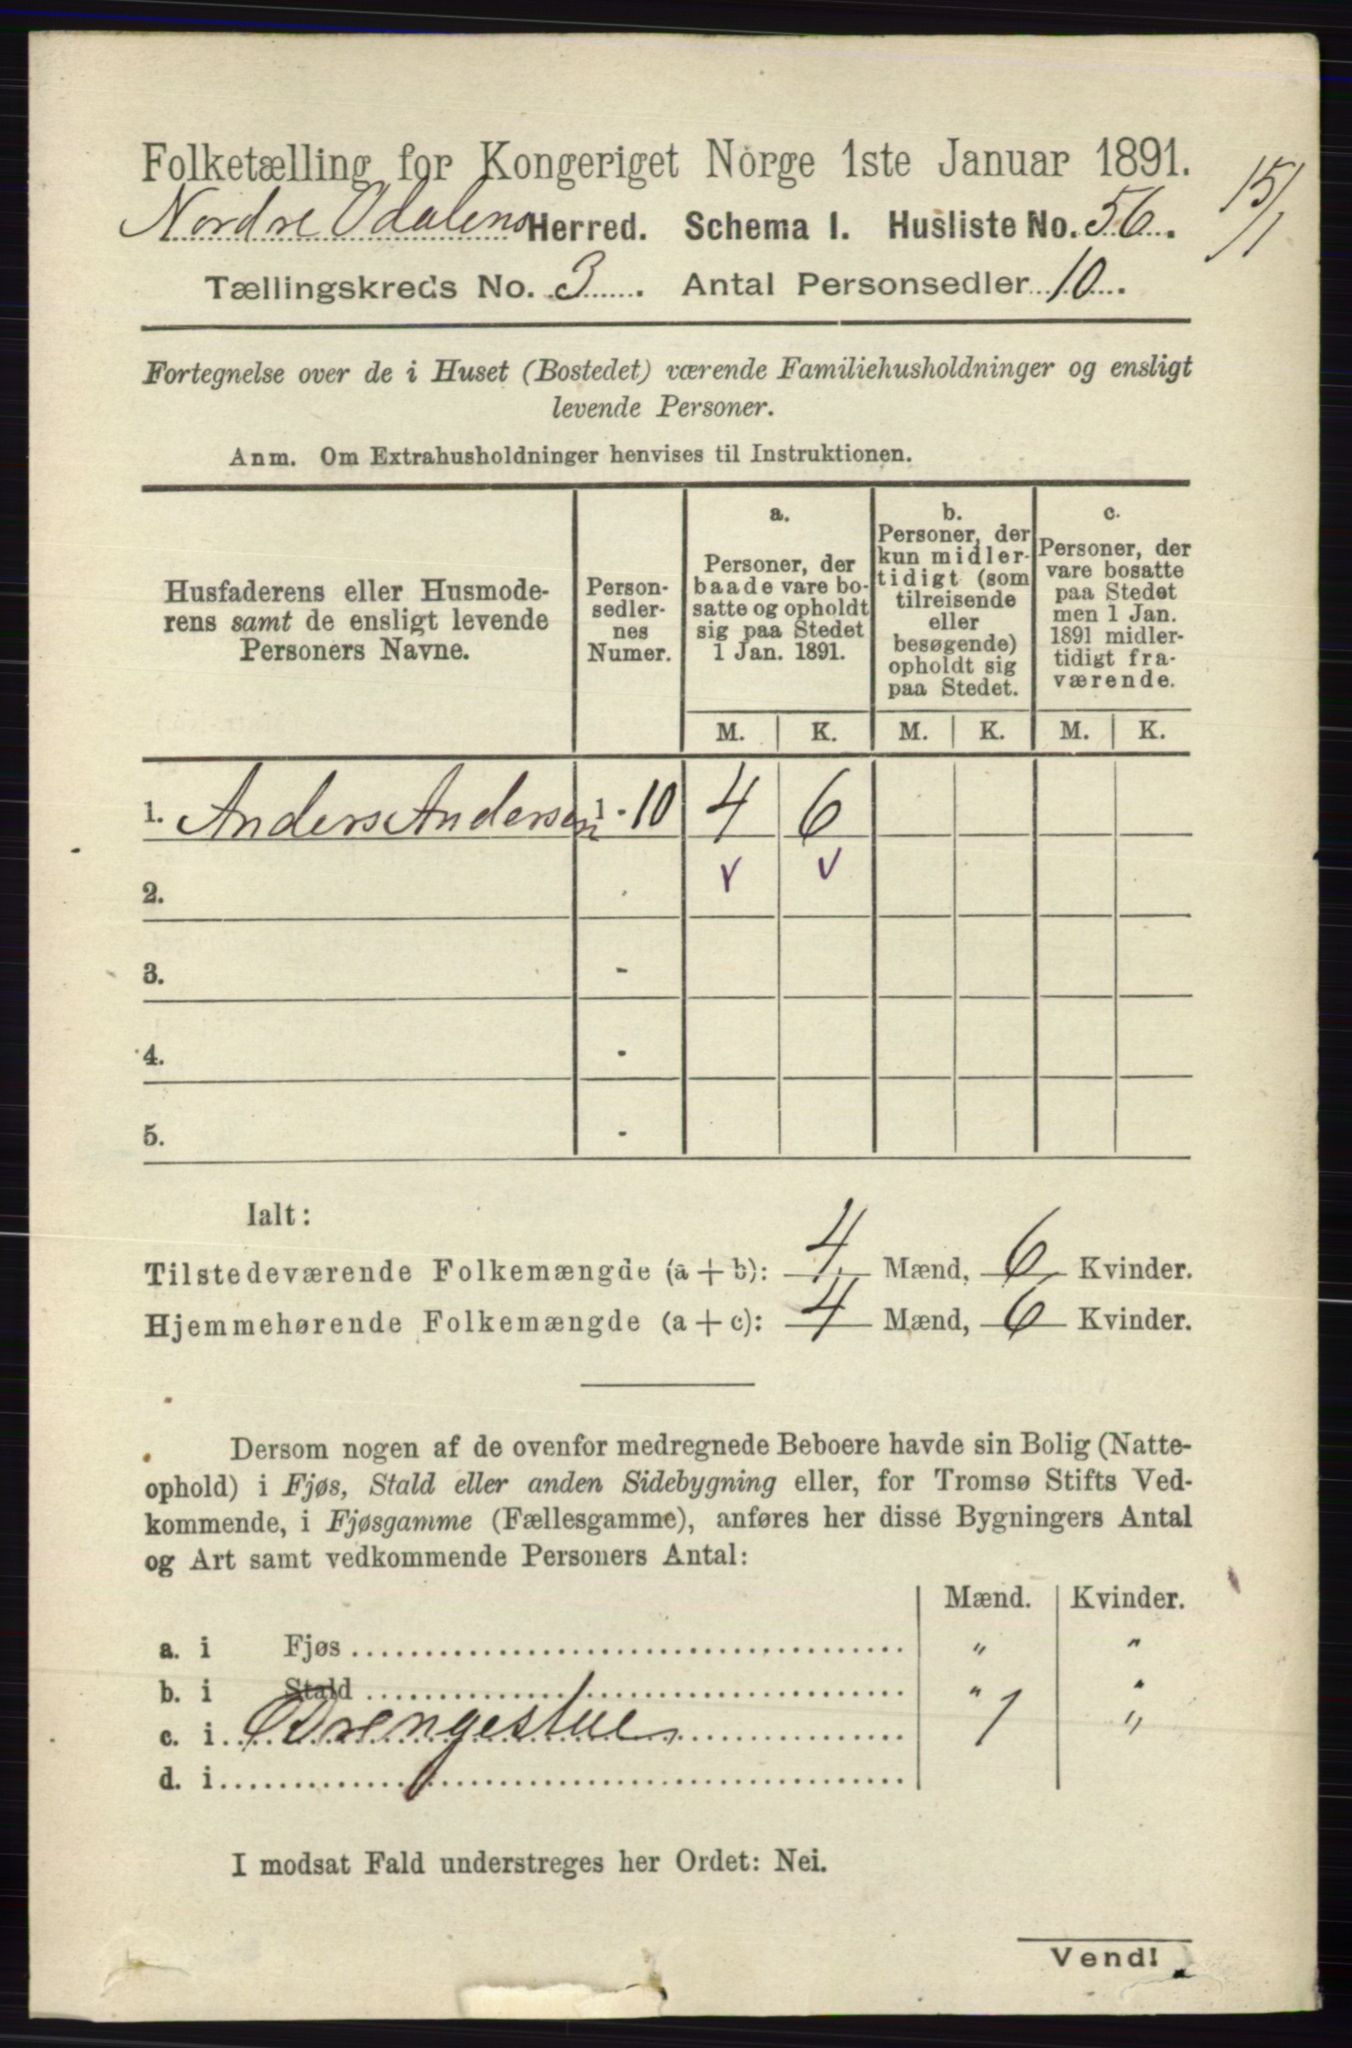 Folketælling for Kongeriget Norge 1ste Januar 1891.
15/1
Nordre Odalens Herred. Schema I. Husliste No. 56.
Tællingskreds No. 3. Antal Personsedler 10.
Fortegnelse over de i Huset (Bostedet) værende Familiehusholdninger og ensligt
levende Personer.
Anm. Om Extrahusholdninger henvises til Instruktionen.
Husfaderens eller Husmode-
rens samt de ensligt levende
Personers Navne.
Person-
sedler-
nes
Numer.
a.
Personer, der
baade vare bo-
satte og opholdt
sig paa Stedet
1 Jan. 1891.
b.
Personer, der
kun midler-
tidigt (som
tilreisende
eller
besøgende)
opholdt sig
paa Stedet.
c.
Personer, der
vare bosatte
paa Stedet
men 1 Jan.
1891 midler-
tidigt fra-
værende.
M. K. M. K. M. K.
1. Anders Andersen 1 - 10 4 6
2. v v
3. -
4. -
5. -
Ialt:
Tilstedeværende Folkemængde (a + b): 4 Mænd, 6 Kvinder.
Hjemmehørende Folkemængde (a + c): 4 Mænd, 6 Kvinder.
Dersom nogen af de ovenfor medregnede Beboere havde sin Bolig (Natte-
ophold) i Fjøs, Stald eller anden Sidebygning eller, for Tromsø Stifts Ved-
kommende, i Fjøsgamme (Fællesgamme), anføres her disse Bygningers Antal
og Art samt vedkommende Personers Antal:
Mænd. Kvinder.
a. i Fjøs " "
b. i Stald " "
c. i Drengestue 1 "
d. i
I modsat Fald understreges her Ordet: Nei.
Vend!